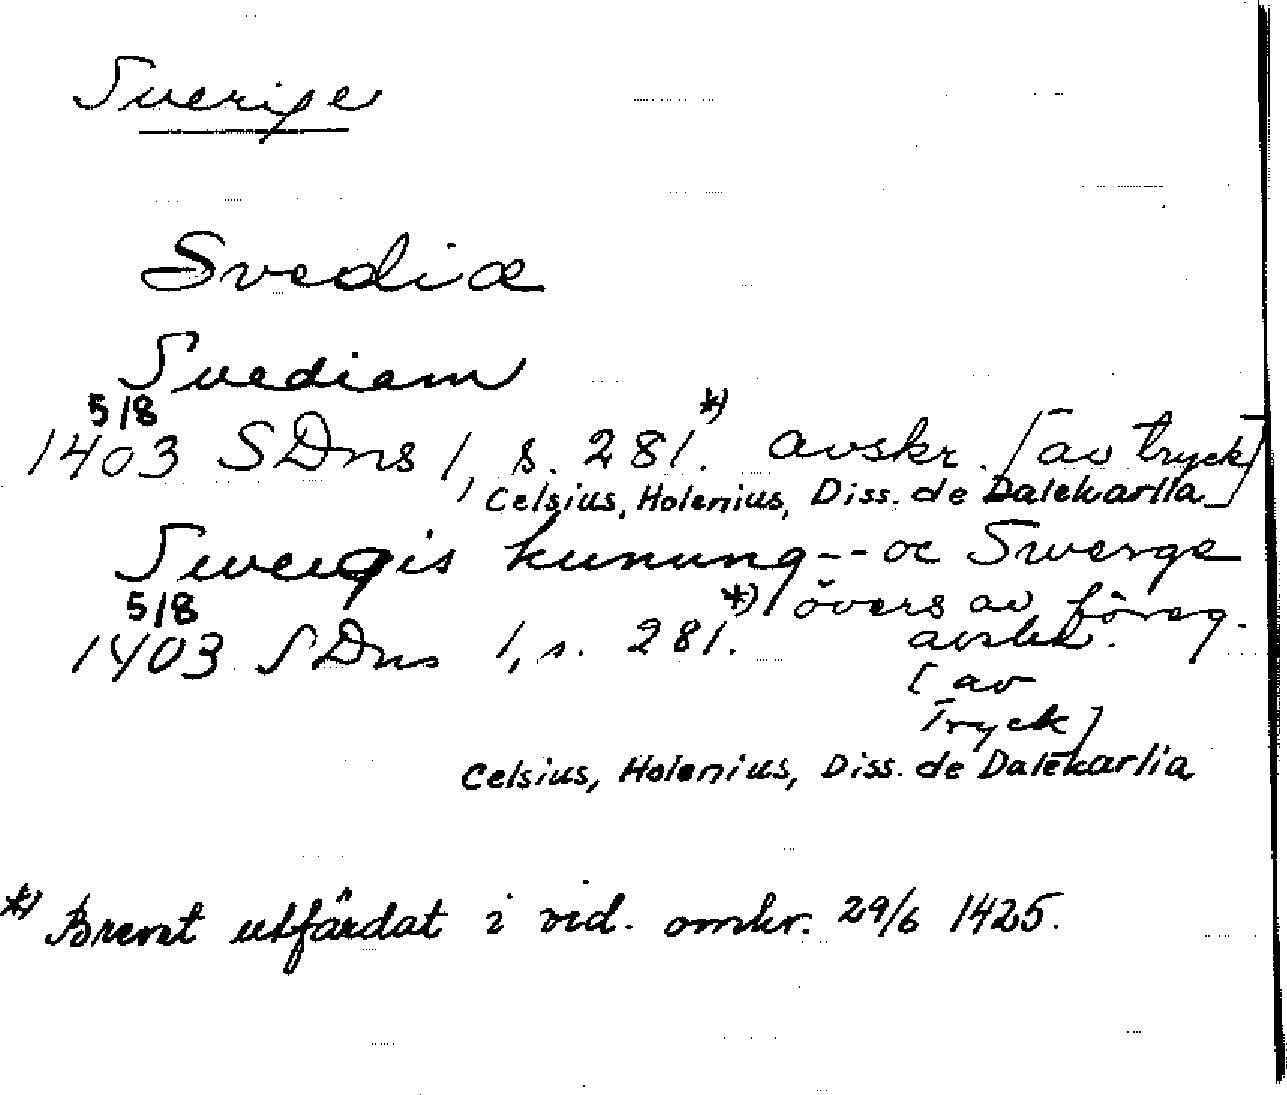 Sverige
Svediæ
Svediam
5/8
1403 SDns 1, s. 281.*) avskr. [av tryck
Celsius, Holenius, Diss. de Dalekarlia]
Swergis kunung -- oc Swerge
5/8 *) övers av föreg.
1403 SDns 1, s. 281. avskr.
[av
Tryck]
Celsius, Holenius, Diss. de Dalekarlia
*) Brevet utfärdat i vid. omkr. 29/6 1425.